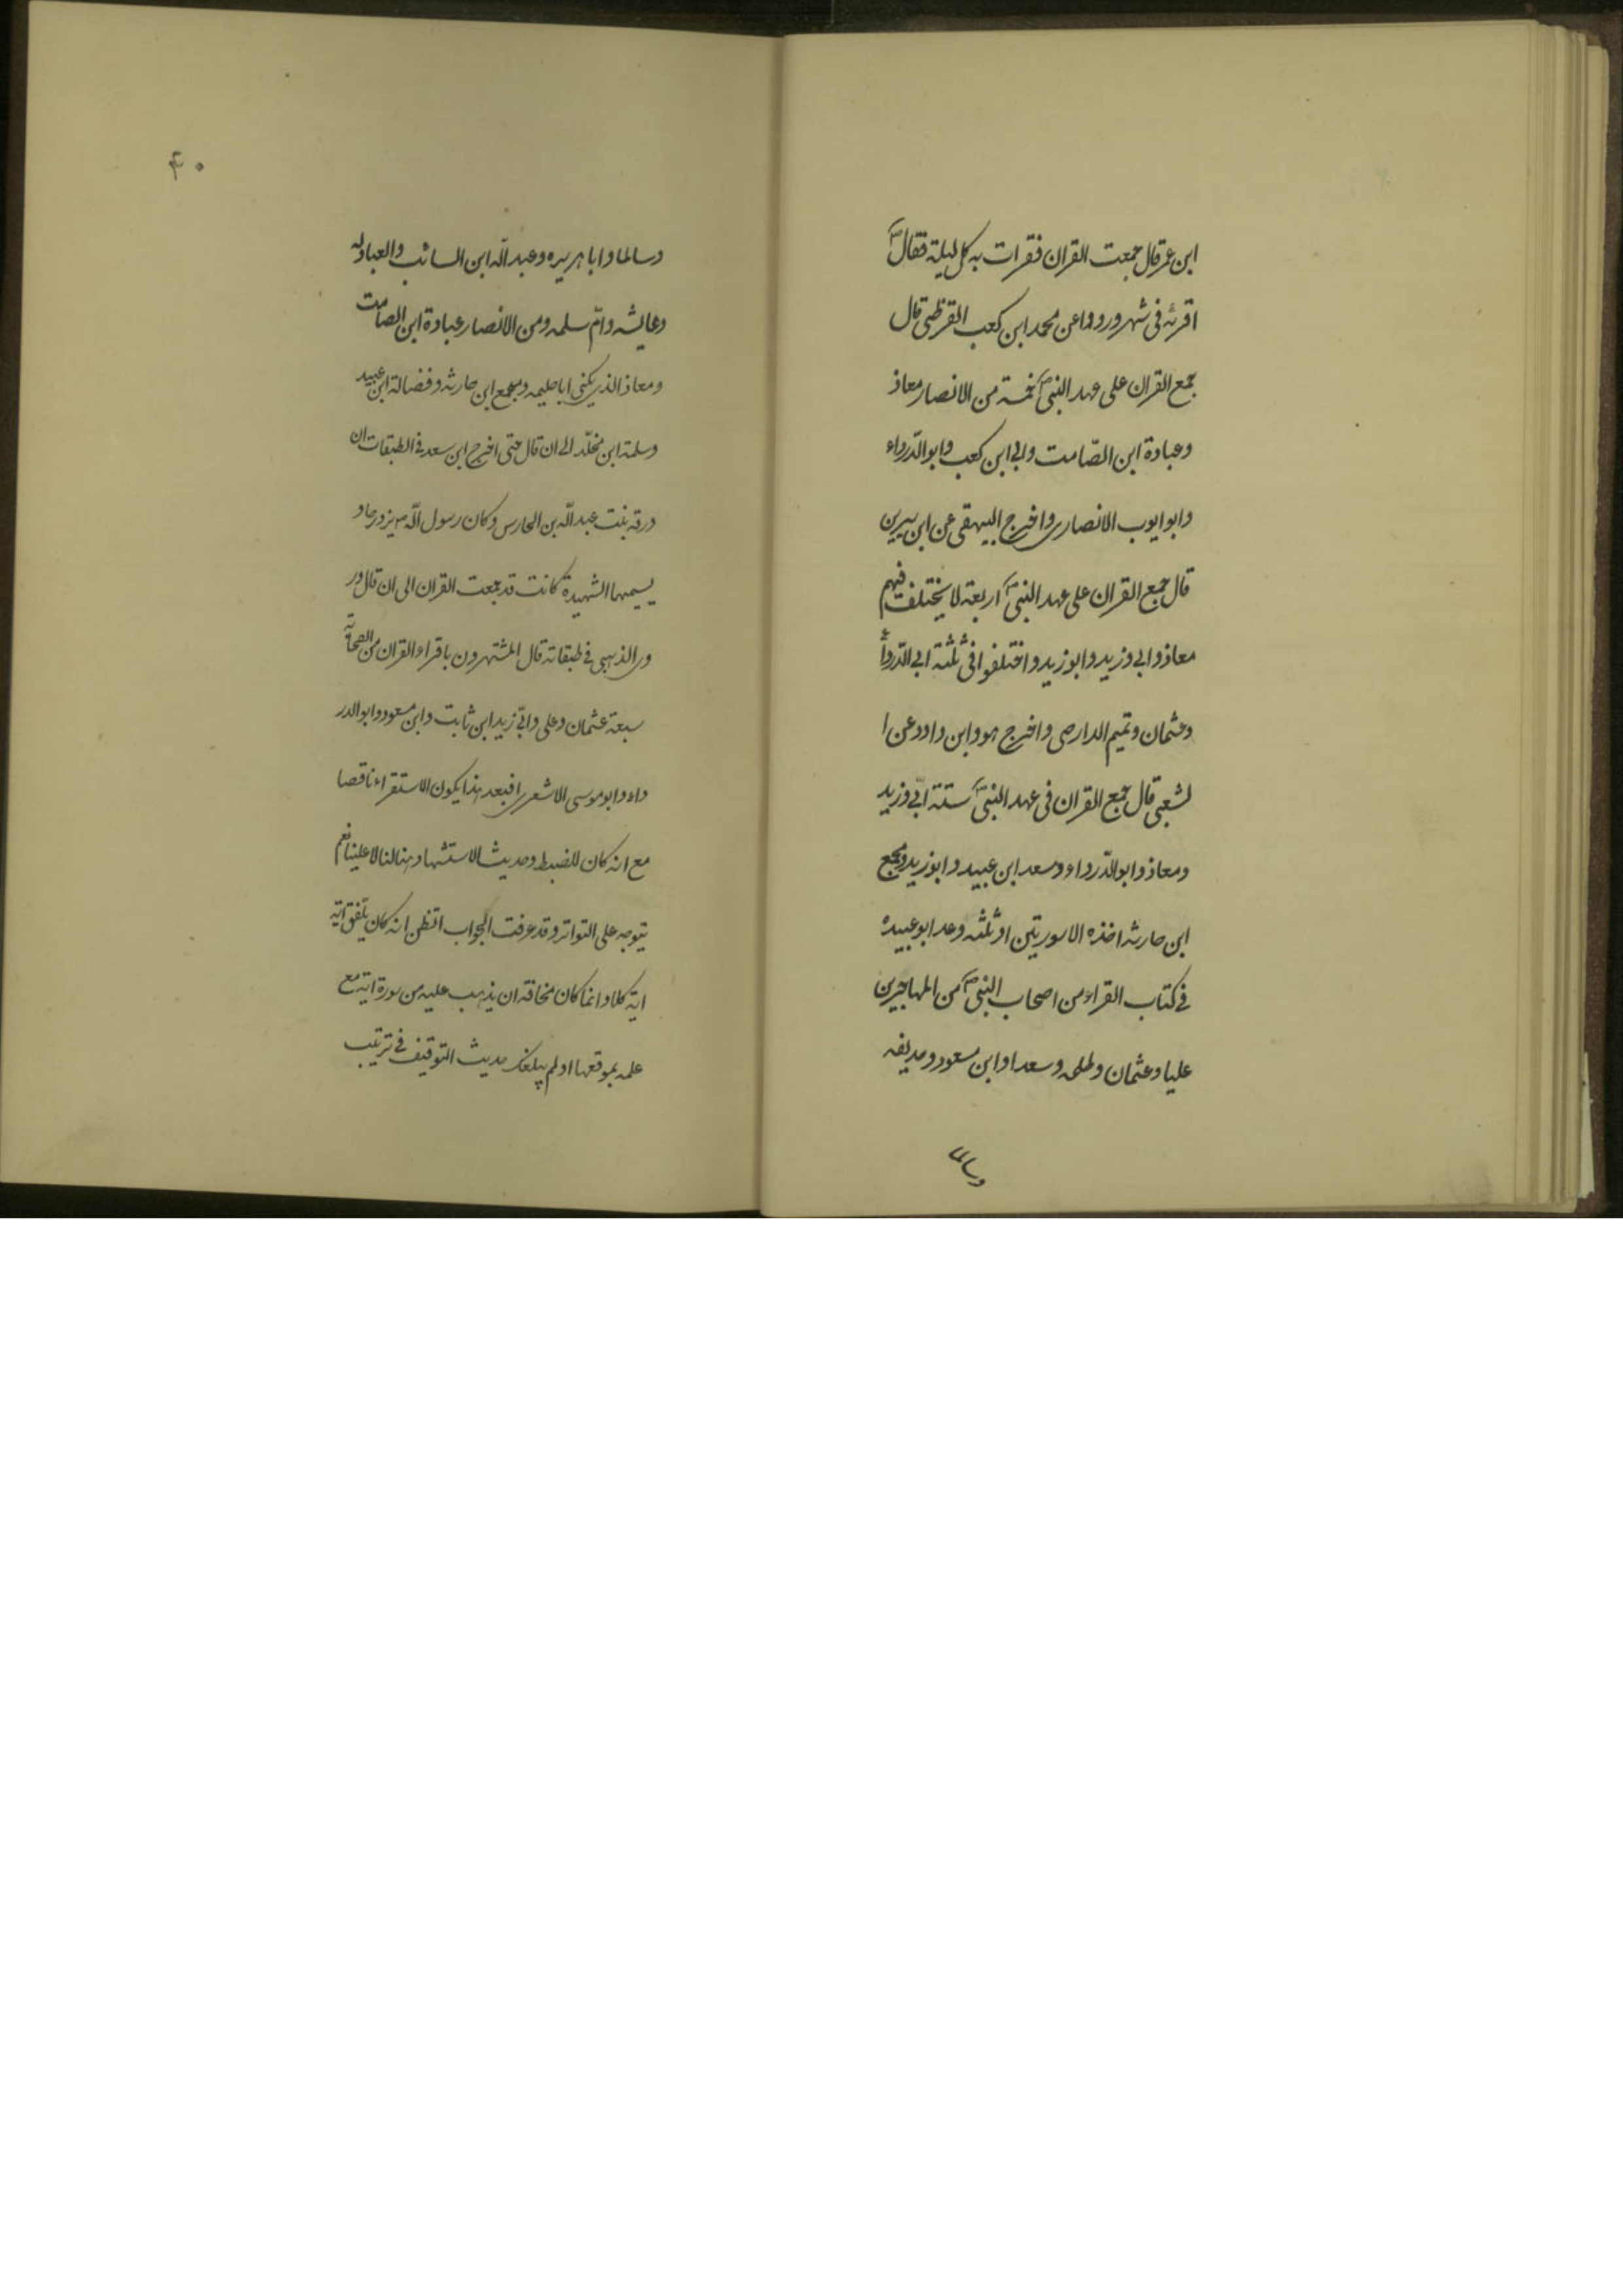 ابن عمر قال جمعت القران فقرات به كل ليلة فقال ص
اقرئه فى شهر ورووا عن محمد ابن كعب القرظى قال
جمع القران على عهد النبى ص خمسة من الانصار معاذ
وعبادة ابن الصّامت وابى ابن كعب وابو الدّرداء
وابو ايوب الانصارى واخرج البيهقى عن ابن سيرين
قال جمع القران على عهد النبى ص اربعة لا يختلف فيهم
معاذ وابى وزيد وابو زيد واختلفوا فى ثلثة ابى الدّرداء
وعثمان وتميم الدارمى واخرج هو وابن داود عن ا
لشعبى قال جمع القران فى عهد النبى ص ستة ابىّ وزيد
ومعاذ وابو الدّرداء وسعد ابن عبيد وابو زيد ومجمع
ابن حارثه اخذه الا سورتين او ثلثه وعد ابو عبيدة
فى كتاب القراء من اصحاب النبى ص من المهاجرين
عليا وعثمان وطلحه وسعدا وابن مسعود وحذيفه
وسالما
۴۰
وسالما وابا هريره وعبد الله ابن السائب والعبادله
وعايشه وامّ سلمه ومن الانصار عبادة ابن الصامت
ومعاذ الذى يكنى ابا حليمه ومجمع ابن حارثه وفضالة ابن عبيد
وسلمة ابن مخلّد الى ان قال حتى اخرج ابن سعد فى الطبقات ان
ورقه بنت عبد الله بن الحارس وكان رسول الله ص يزورها و
يسميها الشهيدة كانت قد جمعت القران الى ان قال ور
وى الذهبى فى طبقاته قال المشتهرون باقراء القران من الصحابة
سبعة عثمان وعلى وابىّ زيد ابن ثابت وابن مسعود وابو الدر
داء وابو موسى الاشعرى افبعد هذا يكون الاستقراء ناقصا
مع انه كان للضبط وحديث الاستشهاد هنا لنا لا علينا نعم
يتوجه على التواتر وقد عرفت الجواب اتظن انه كان يلفق اية
اية كلا وانما كان مخافة ان يذهب عليه من سورة اية مع
علمه بموقعها اولم يبلغك حديث التوقيف فى ترتيب